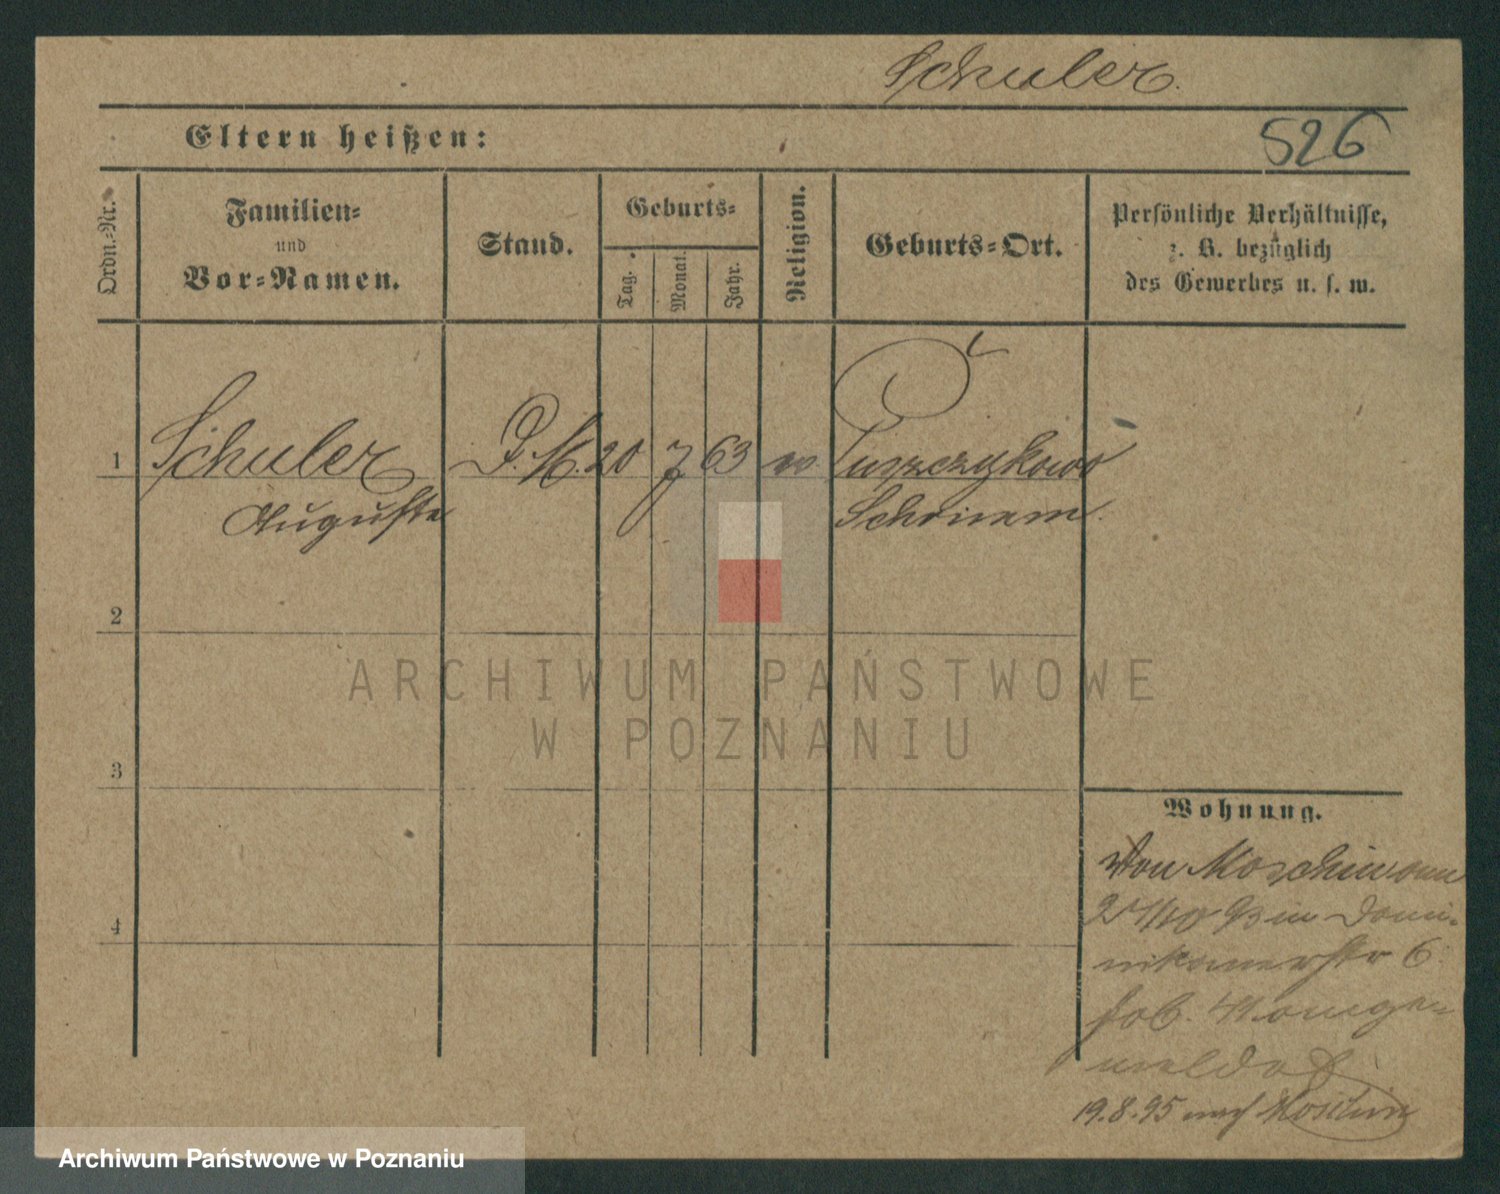 Schuler.
Eltern heißen:
526
Ordn.-Nr.
Familien-
und
Vor-Namen.
Stand.
Geburts-
Tag.
Monat.
Jahr.
Religion.
Geburts-Ort.
Persönliche Verhältnisse,
z. B. bezüglich
des Gewerbes u. s. w.
1
Schuler
D. M. 20 7 63
Puszczykowo
Auguste
Schrimm.
2
ARCHIWUM PAŃSTWOWE
W POZNANIU
3
Wohnung.
Von Moschin
93 in Domi-
nikanerstr 6
4
19.8.95 nach Moschin
Archiwum Państwowe w Poznaniu